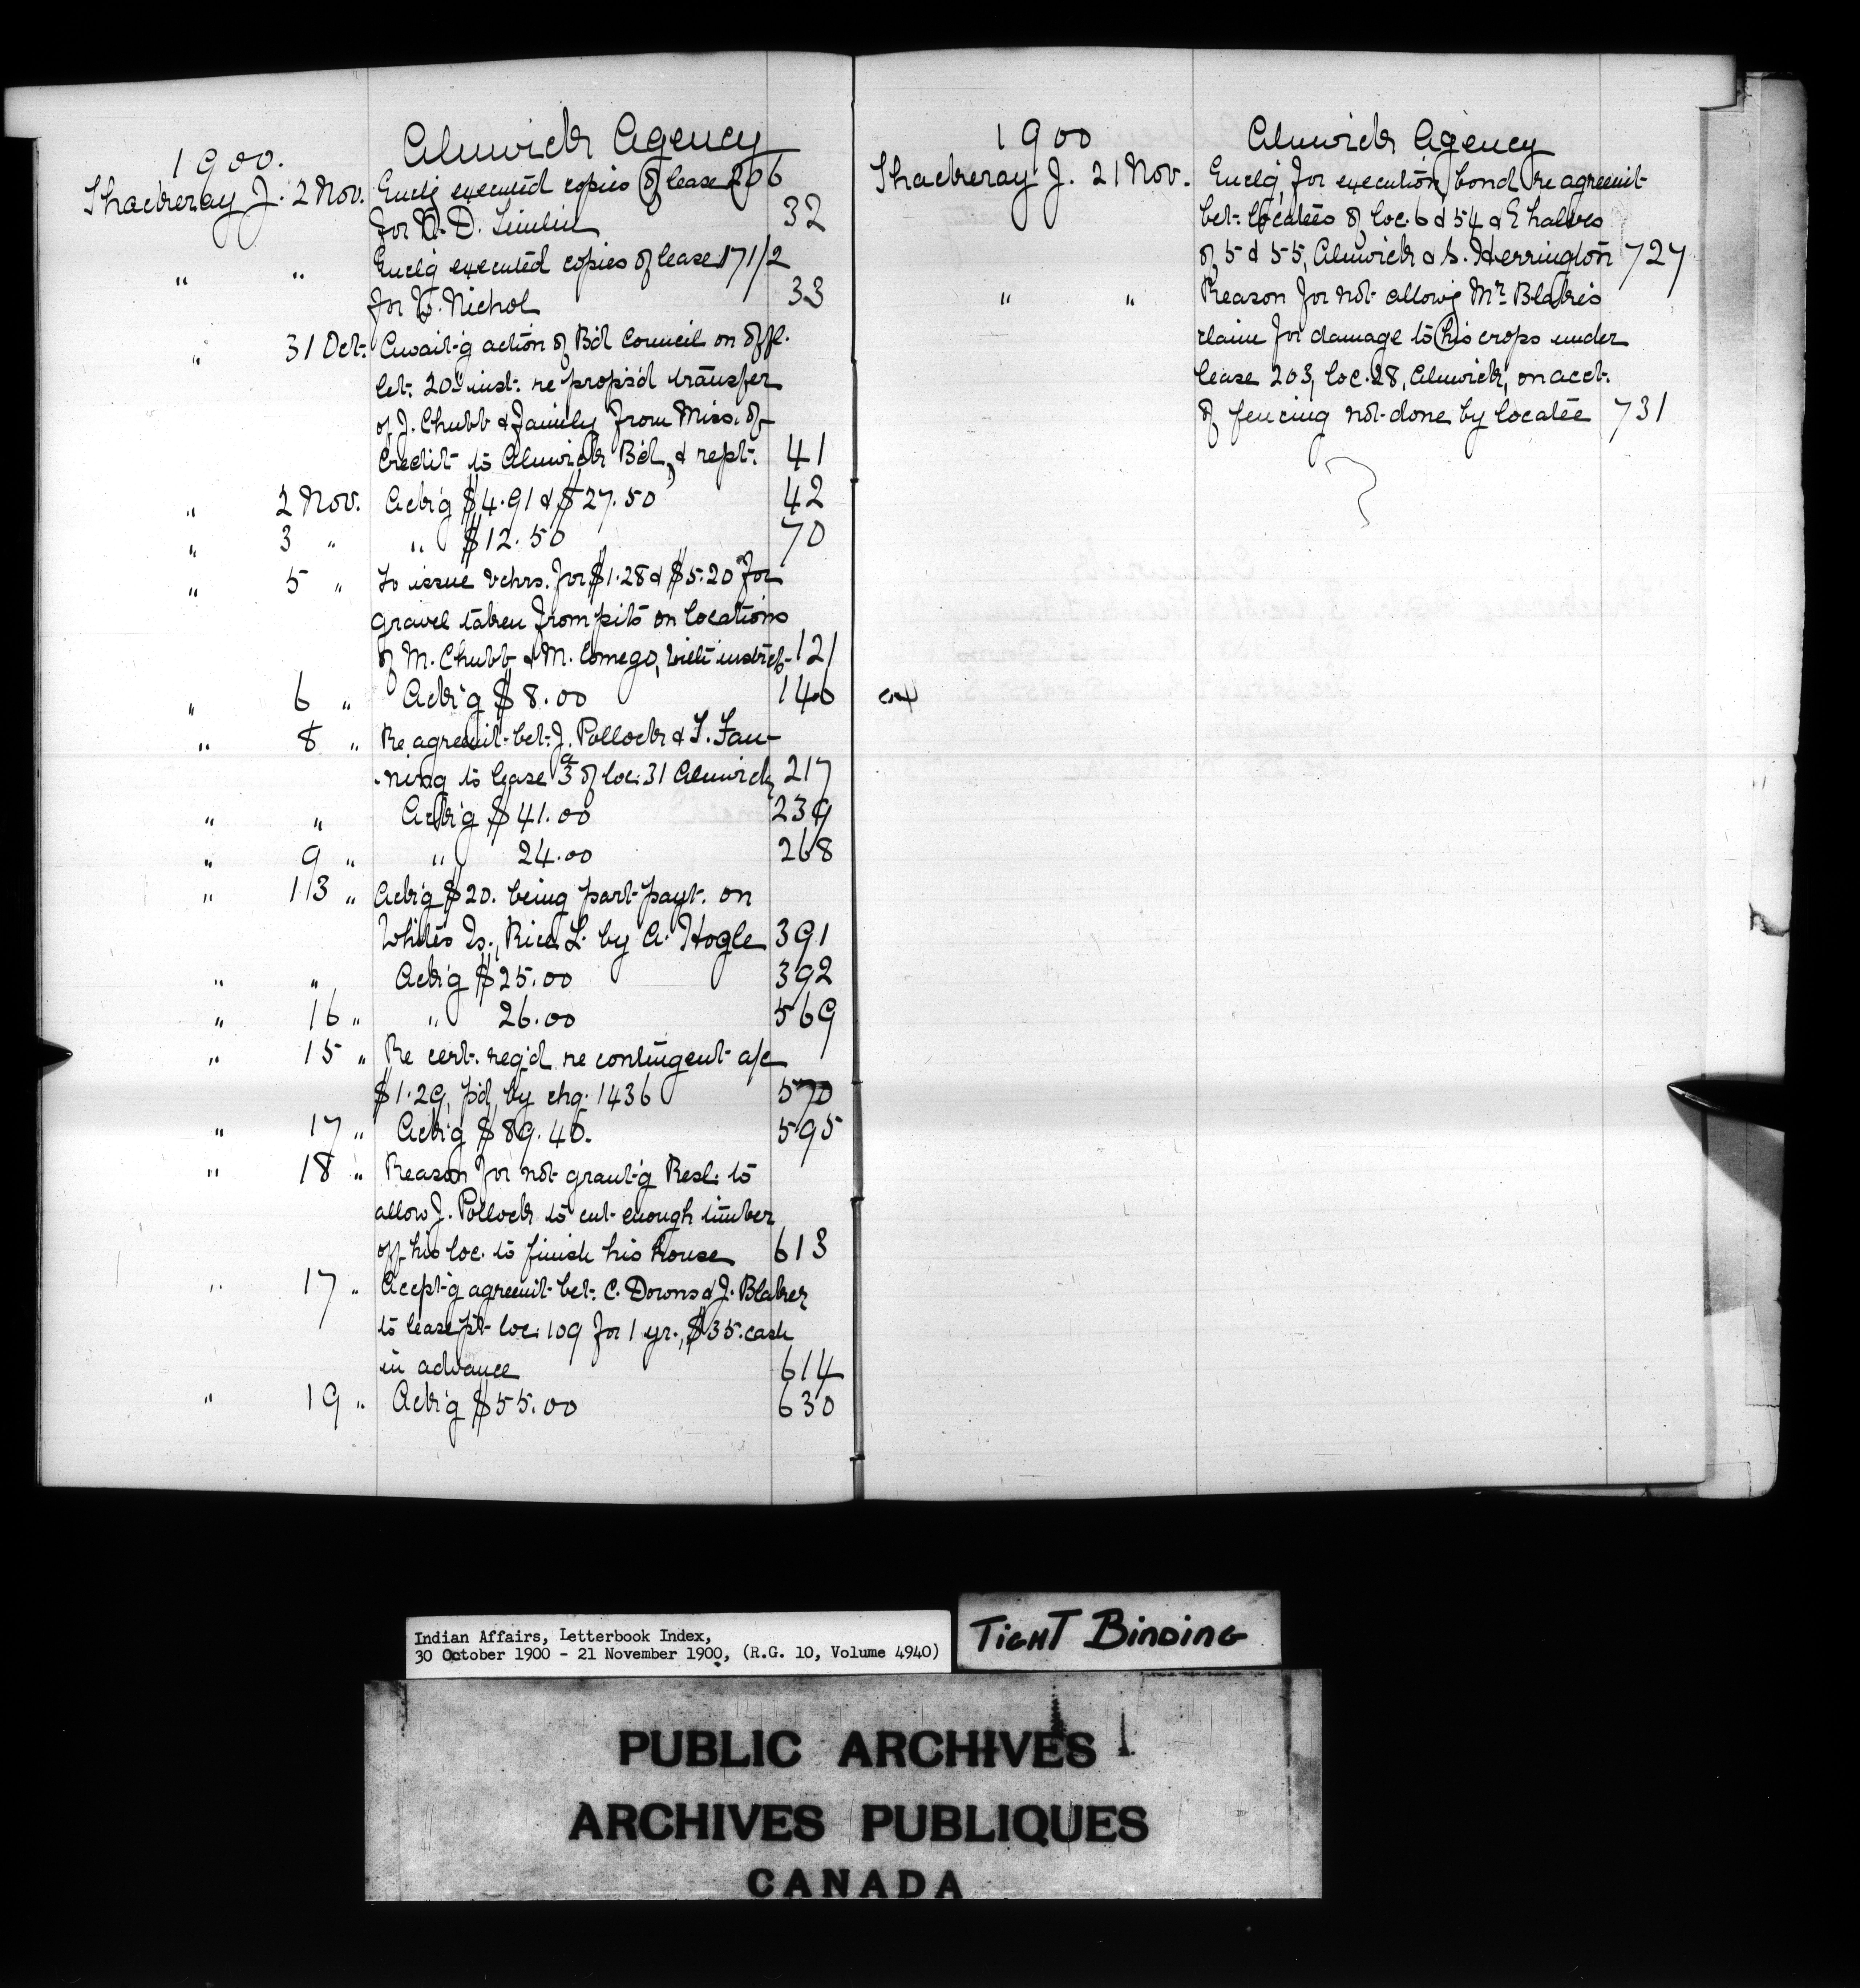 1900. Alnwick Agency
Thackeray J. 2 Nov. Encl'g executed copies of lease 206
for D. 32
" " Encl'g executed copies of lease 171/2
for W. Nichol 33
" 31 Oct. Await'g action of B'd Council on offl.
let. 20th inst. re propos'd transfer
of J. Chubb & family from Miss. of
Credit to Alnwick B'd, & rept. 41
" 2 Nov. Ack'g $4.91 & $27.50 42
" 3 " " $12.50 70
" 5 " To issue vchrs. for $1.28 & $5.20 for
gravel taken from pits on locations
of M. Chubb & M. Comego, with instrct. 121
" 6 " Ack'g $8.00 146
" 8 " Re agreemt. bet. J. Pollock & T. Fan-
ning to lease 3 of loc. 31 Alnwick 217
" " Ack'g $41.00 239
" 9 " " 24.00 268
" 13 " Ack'g $20. being part payt. on
Whites Is., Rice L. by A. Hogle 391
" " Ack'g $25.00 392
" 16 " " 26.00 569
" 15 " Re cert. req'd re contingent a/c
$1.29, p'd by chq. 1436 570
" 17 " Ack'g $89.40. 595
" 18 " Reason for not grant'g Resl. to
allow J. Pollock to cut enough timber
off his loc. to finish his house 613
" 17 " Accept'g agreemt. bet. C. Downs & J. Blaker
to lease pt. loc. 109 for 1 yr., $35. cash
in advance 614
" 19 " Ack'g $55.00 630
1900 Alnwick Agency
Thackeray J. 21 Nov. Encl'g, for execution, bond re agreemt.
bet. locatees of loc. 6 & 54 & E halves
of 5 & 55, Alnwick & S. Herrington 727
" " Reason for not allow'g Mr. Blake's
claim for damage to his crops under
lease 203, loc. 28, Alnwick, on acct.
of fencing not done by locatee 731
Indian Affairs, Letterbook Index,
30 October 1900 - 21 November 1900, (R.G. 10, Volume 4940)
TIGHT BINDING
PUBLIC ARCHIVES
ARCHIVES PUBLIQUES
CANADA